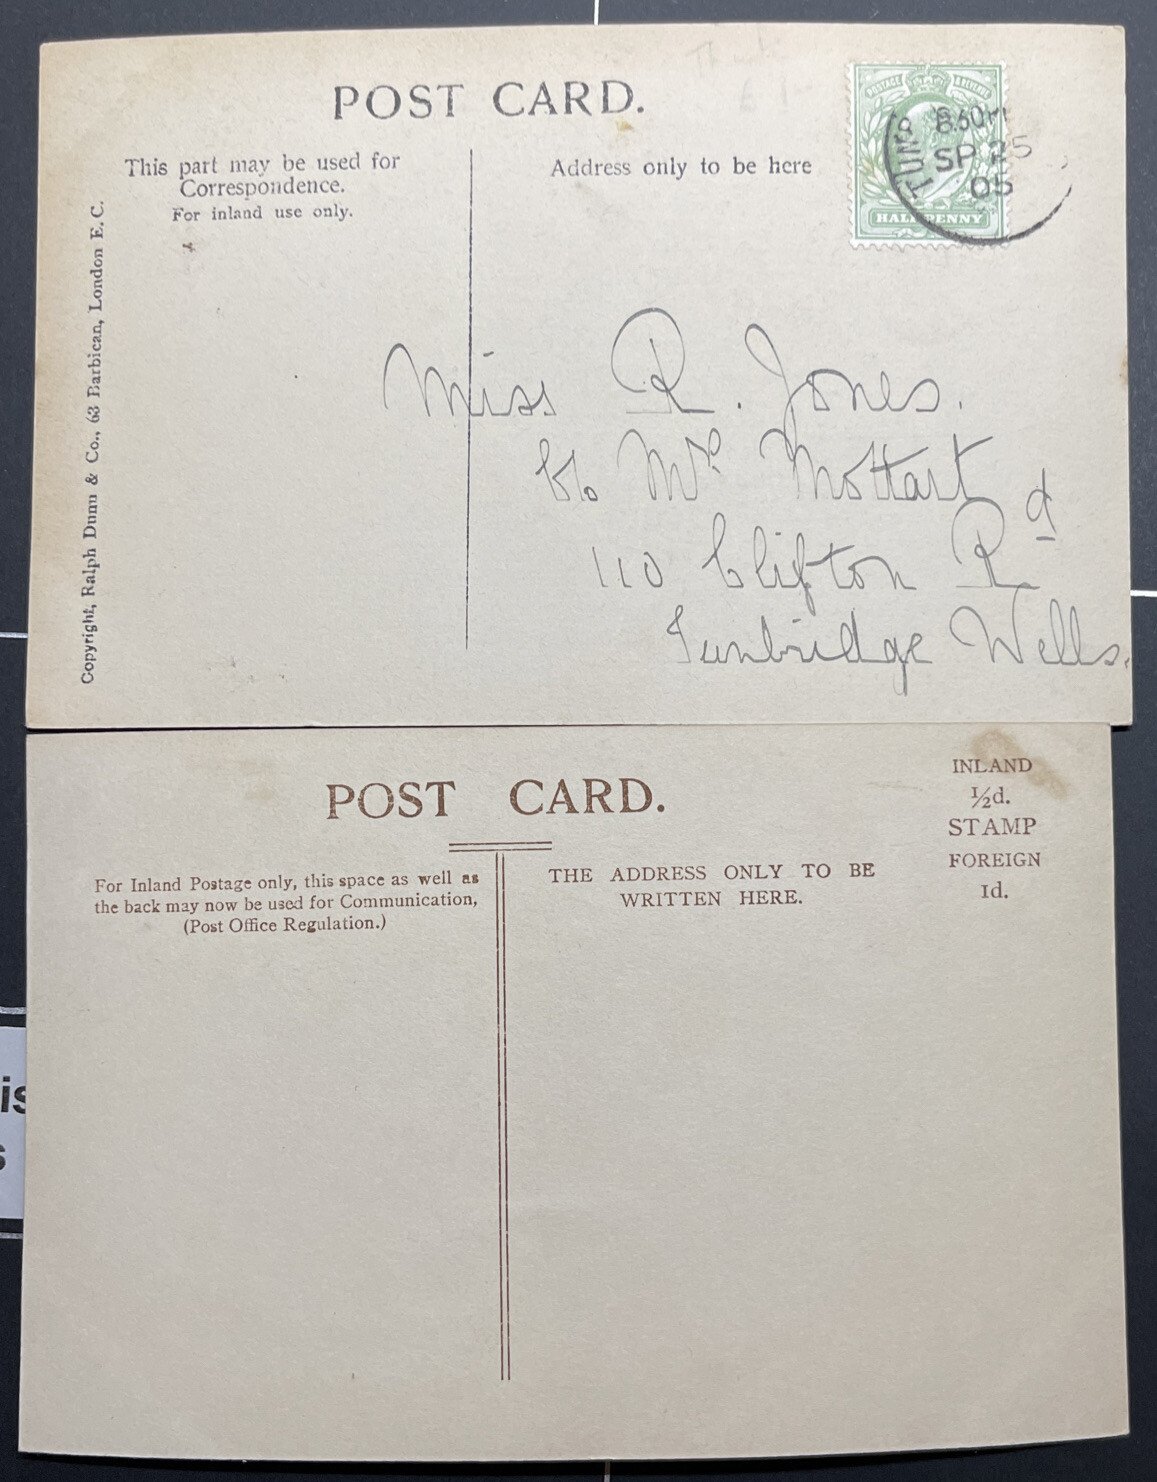 POST CARD.
This part may be used for
Correspondence.
For inland use only.
Address only to be here
POSTAGE & REVENUE
HALFPENNY
TUNB
SP 25
05
Copyright, Ralph Dunn & Co., 63 Barbican, London E.C.
Miss R. Jones.
c/o Mrs Mottart
110 Clifton Rd
Tunbridge Wells.
POST CARD.
INLAND
½d.
STAMP
FOREIGN
1d.
For Inland Postage only, this space as well as
the back may now be used for Communication,
(Post Office Regulation.)
THE ADDRESS ONLY TO BE
WRITTEN HERE.
is
s